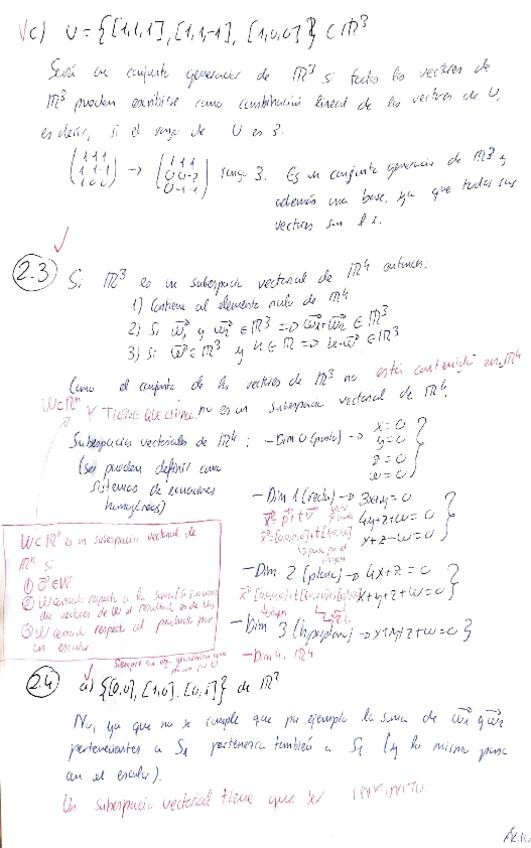 √c) U = {[1,1,1], [1,1,-1], [1,0,0]} ⊂ ℝ³
Será un conjunto generador de ℝ³ si todos los vectores de
ℝ³ pueden escribirse como combinación lineal de los vectores de U,
es decir, si el rango de U es 3.
(1 1 1 / 1 1 -1 / 1 0 0) → (1 1 1 / 0 0 -2 / 0 -1 -1) rango 3. Es un conjunto generador de ℝ³ y
además una base, ya que todos sus
vectores son l.i.
2.3 Si ℝ³ es un subespacio vectorial de ℝ⁴ entonces:
1) Contiene al elemento nulo de ℝ⁴
2) Si w₁ y w₂ ∈ ℝ³ => w₁+w₂ ∈ ℝ³
3) Si w ∈ ℝ³ y k ∈ ℝ => k·w ∈ ℝ³
Como el conjunto de los vectores de ℝ³ no está contenido en ℝ⁴
W⊂ℝⁿ Y TIENE QUE no es un subespacio vectorial de ℝ⁴.
Subespacios vectoriales de ℝ⁴: - Dim 0 (punto) → x=0
y=0
z=0
w=0
(se pueden definir como
sistemas de ecuaciones
homogéneas)
- Dim 1 (recta) → 3x+y=0
4y+z+w=0
x+z-w=0
x = p + t v
- Dim 2 (plano) → 4x+z=0
x+y+z+w=0
- Dim 3 (hiperplano) → x+y+z+w=0
- Dim 4. ℝ⁴
W⊂ℝⁿ es un subespacio vectorial de
ℝⁿ si
① 0 ∈ W
② W cerrado respecto a la suma (si sumamos
dos vectores de W el resultado es de W)
③ W cerrado respecto al producto por
un escalar
2.4 a) {[0,0], [1,0], [0,1]} de ℝ²
No, ya que no se cumple que por ejemplo la suma de w₁ y w₂
pertenecientes a S₁ pertenezca también a S₁ (y lo mismo pasa
con el escalar).
Un subespacio vectorial tiene que ser INFINITO.